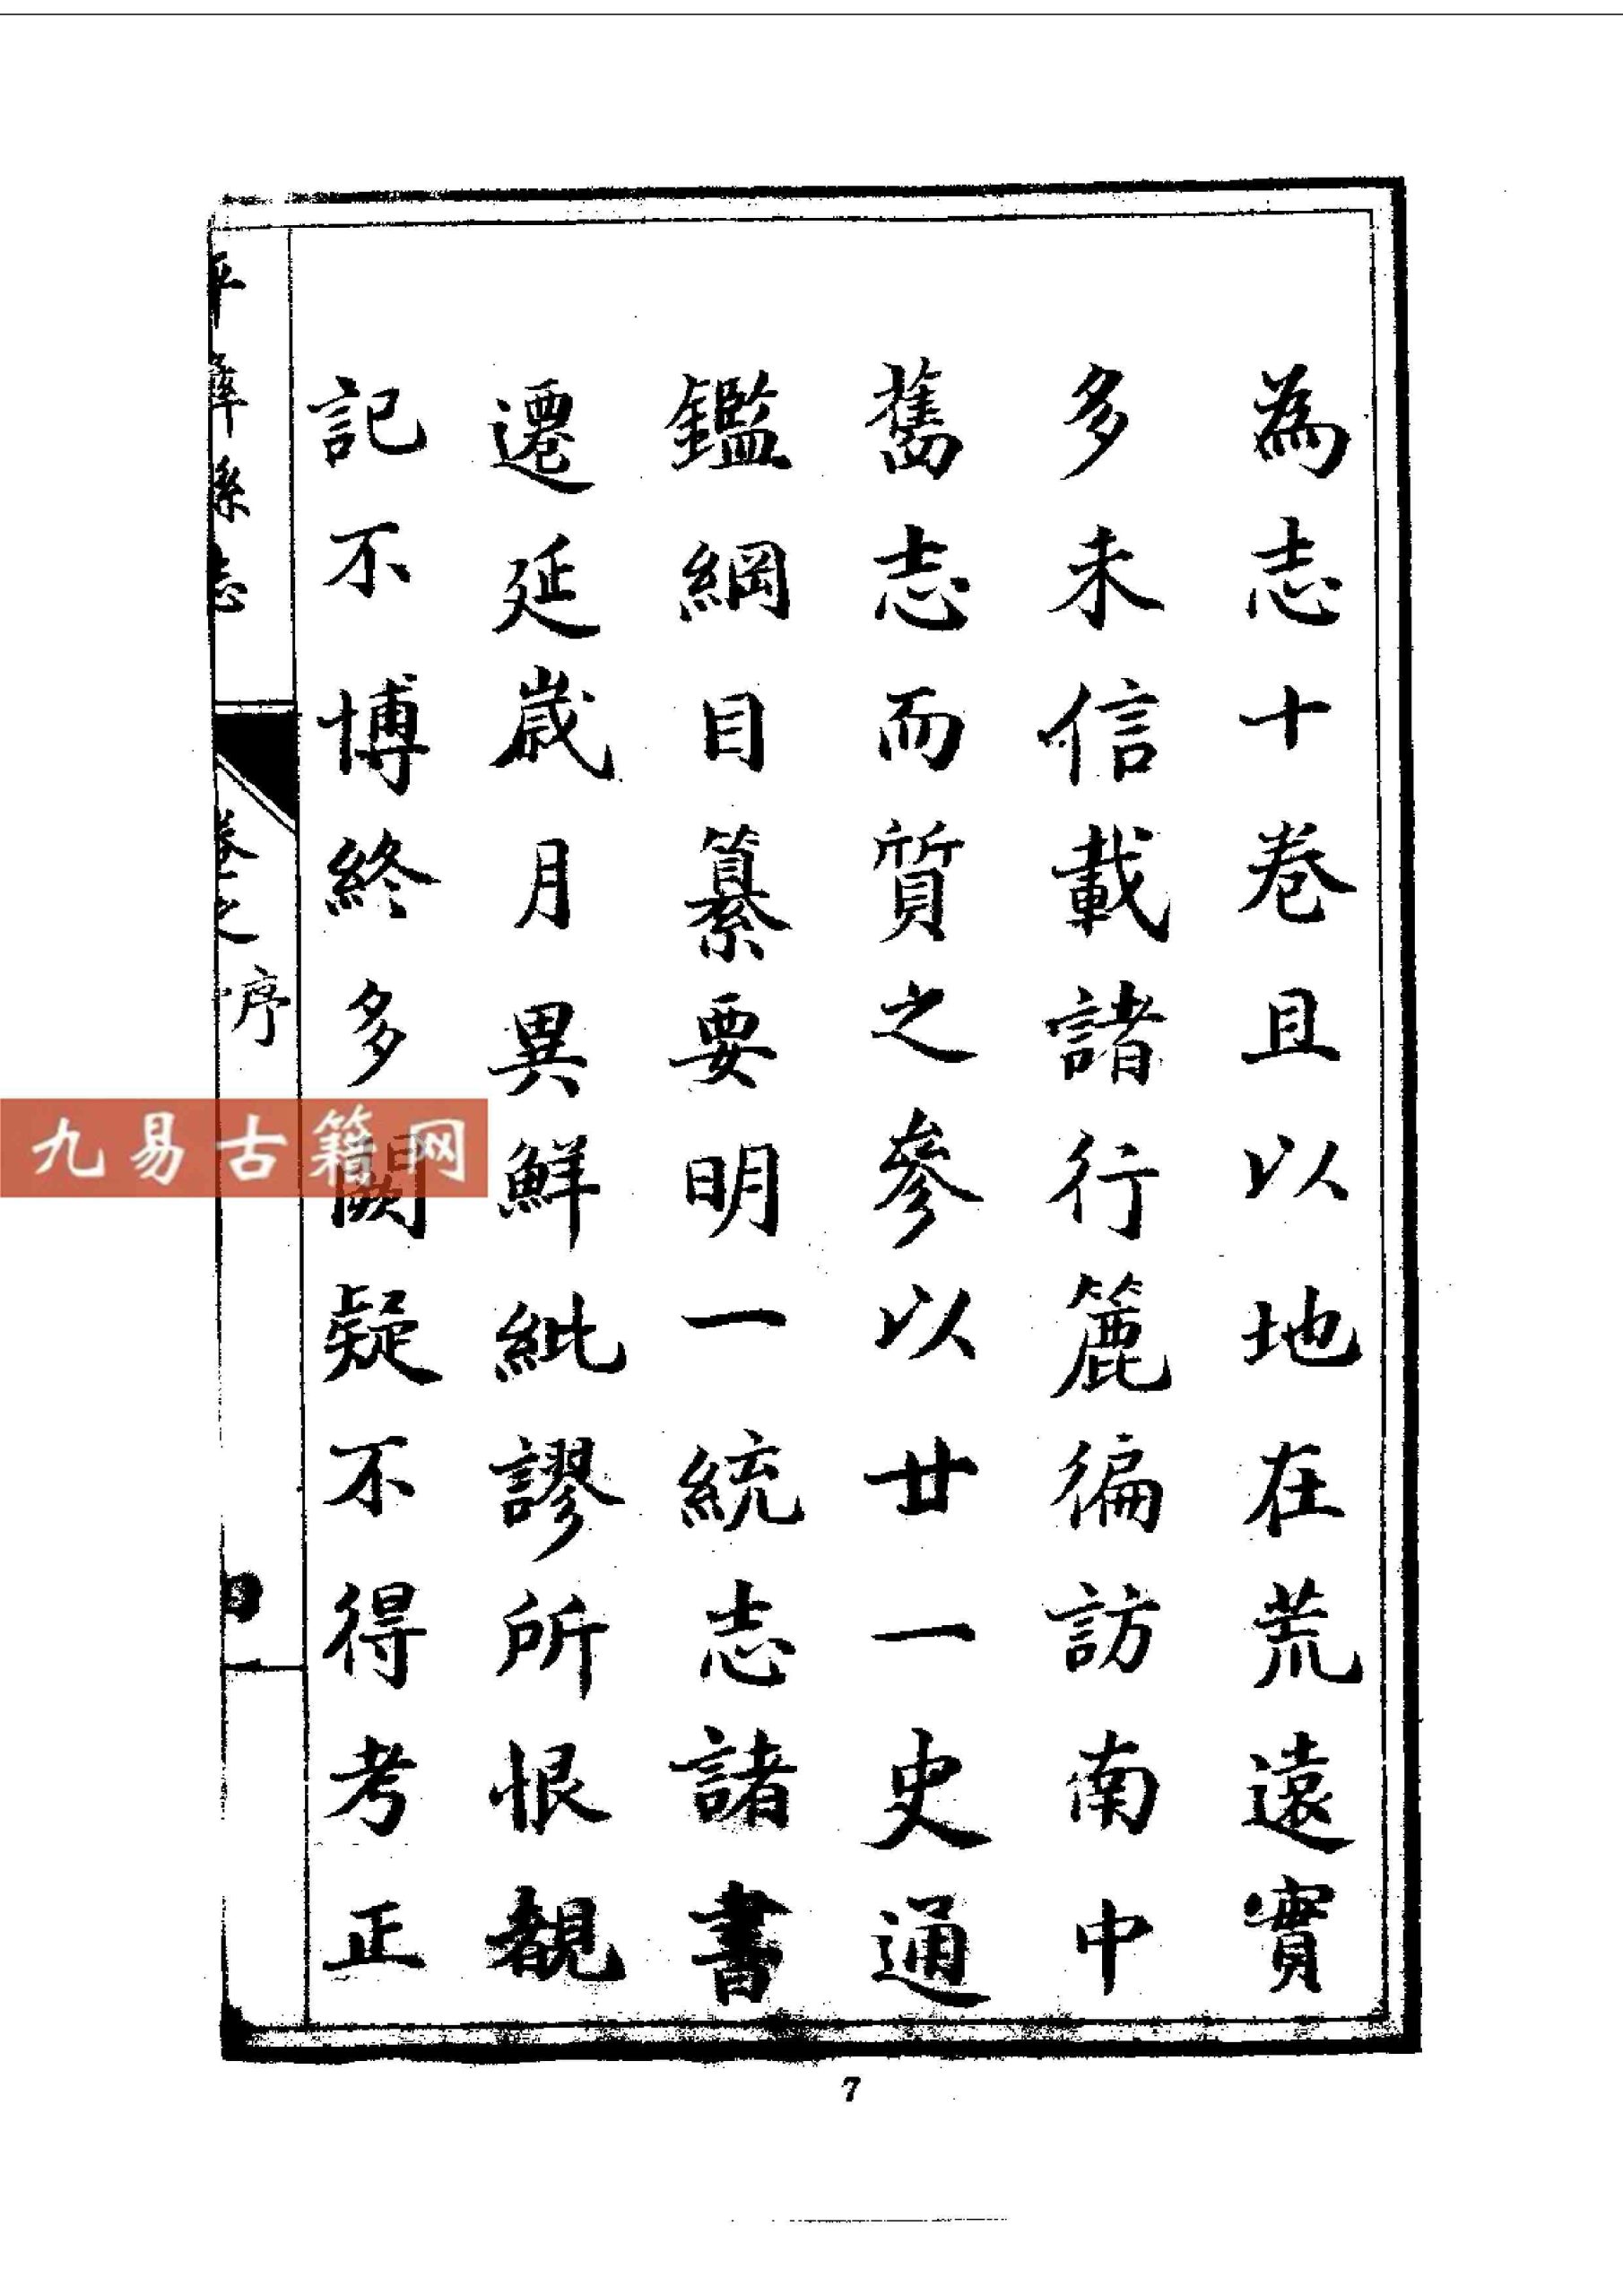 為志十卷且以地在荒遠實
多未信載諸行簏徧訪南中
舊志而質之參以廿一史通
鑑綱目纂要明一統志諸書
遷延歲月異鮮紕謬所恨覩
記不博終多闕疑不得考正
平彝縣志
卷之
序
九易古籍网
7